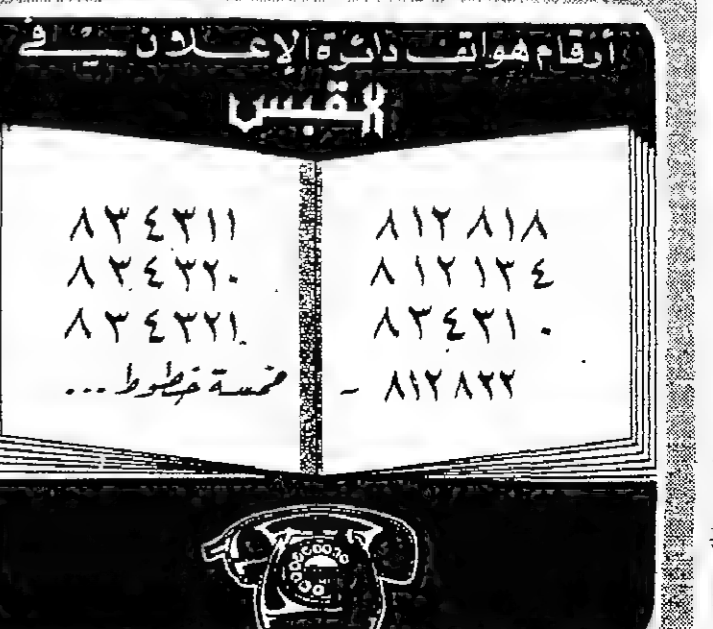 أرقام هواتف دائرة الإعلان في
القبس
٨١٢٨١٨
٨١٢١٣٤
٨٣٤٣١٠
٨١٢٨٢٢ -
٨٣٤٣١١
٨٣٤٣٢٠
٨٣٤٣٢١
خمسة خطوط ...